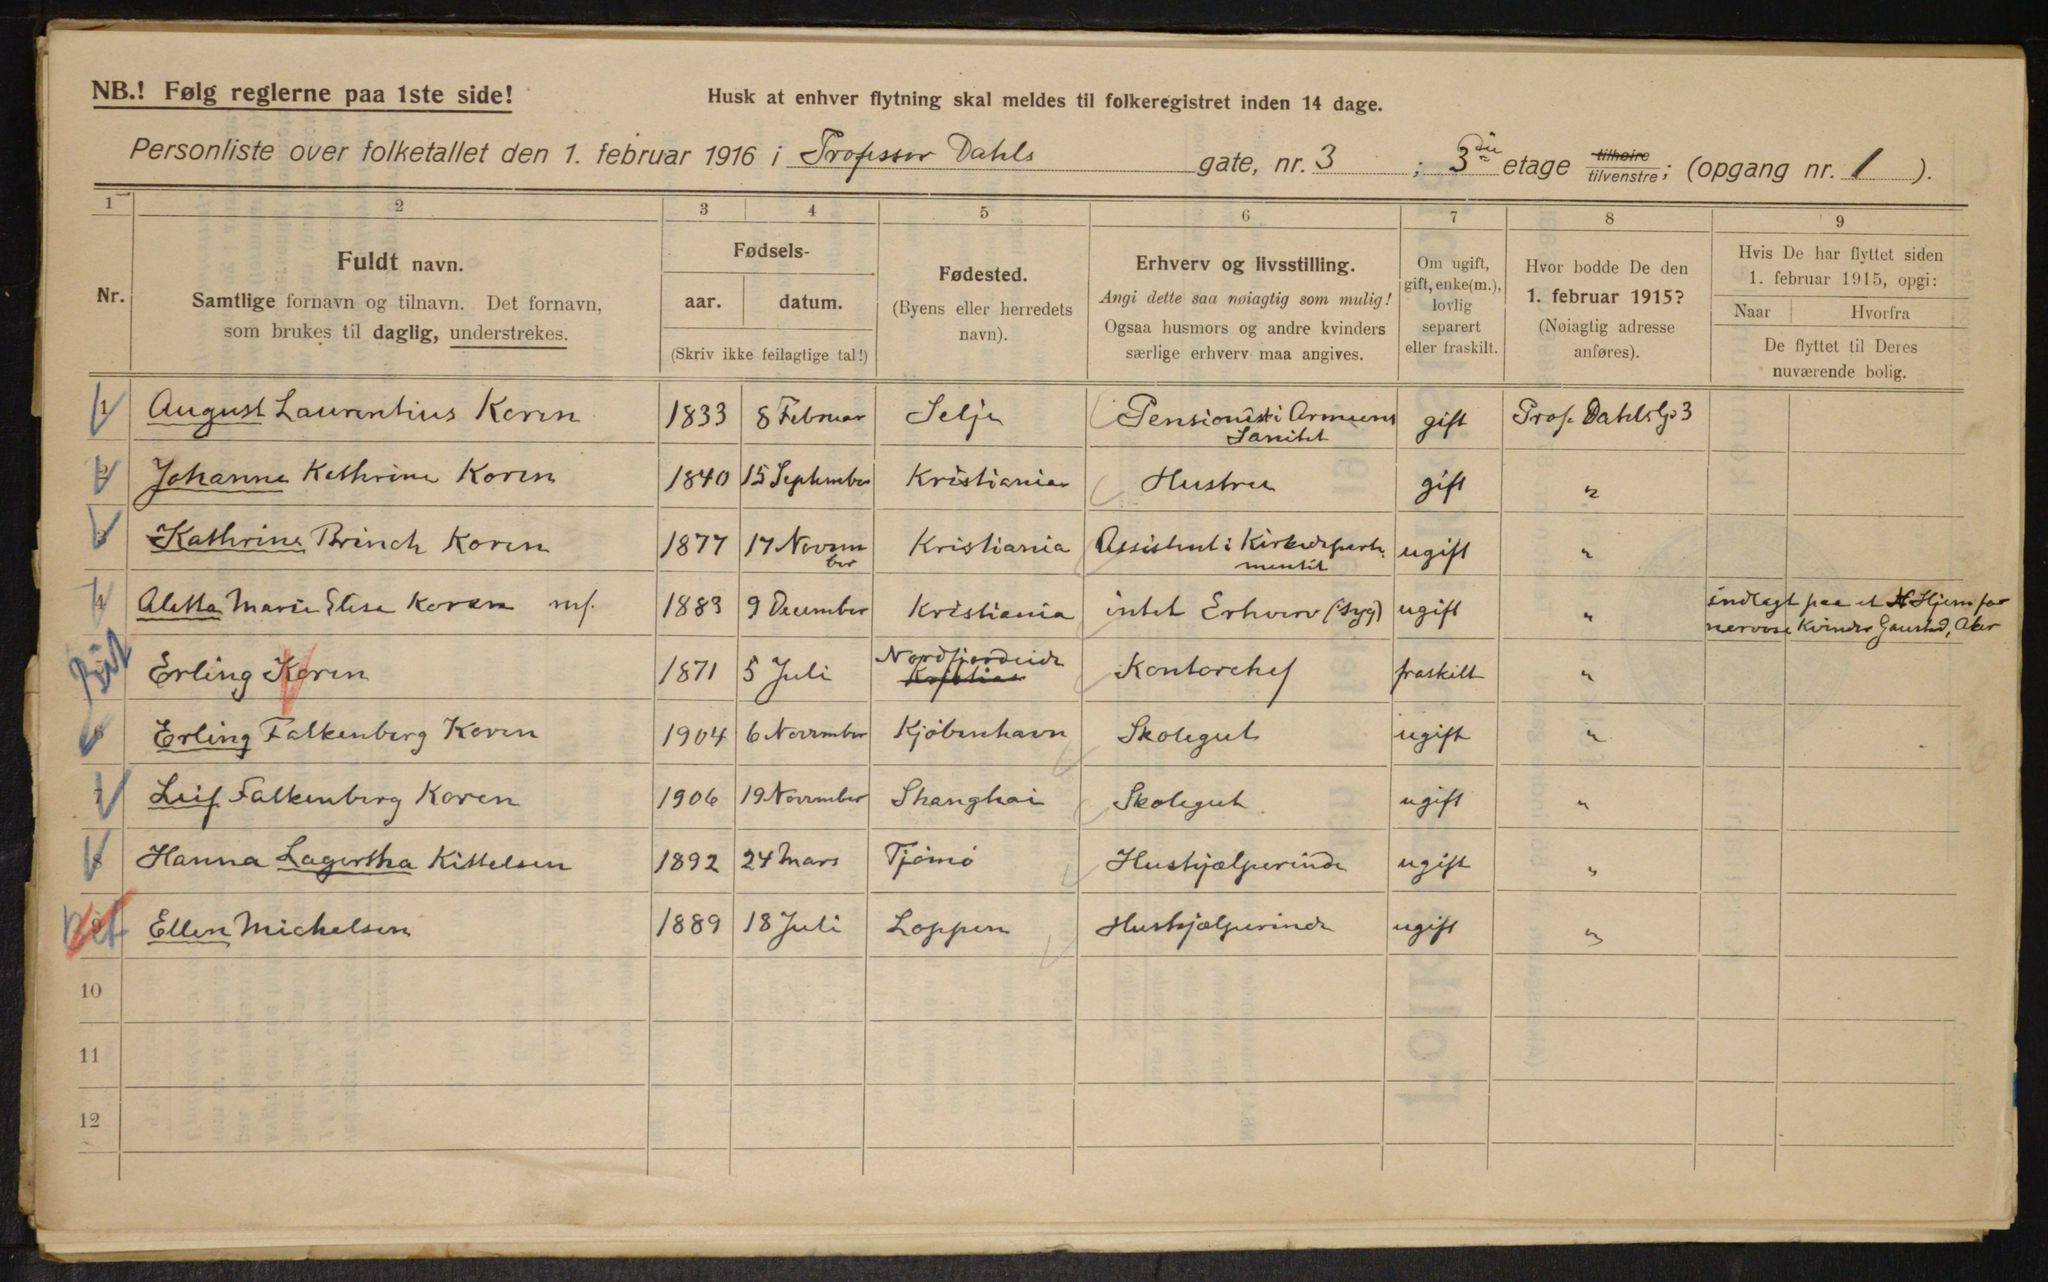 NB.! Følg reglerne paa 1ste side!
Husk at enhver flytning skal meldes til folkeregistret inden 14 dage.
Personliste over folketallet den 1. februar 1916 i Professor Dahls gate, nr. 3 ; 3die etage tilhøire tilvenstre; (opgang nr. 1 ).
1 2 3 4 5 6 7 8 9
Nr.
Fuldt navn.
Samtlige fornavn og tilnavn. Det fornavn,
som brukes til daglig, understrekes.
Fødsels-
aar. datum.
(Skriv ikke feilagtige tal!)
Fødested.
(Byens eller herredets
navn).
Erhverv og livsstilling.
Angi dette saa nøiagtig som mulig!
Ogsaa husmors og andre kvinders
særlige erhverv maa angives.
Om ugift,
gift, enke(m.),
lovlig
separert
eller fraskilt.
Hvor bodde De den
1. februar 1915?
(Nøiagtig adresse
anføres).
Hvis De har flyttet siden
1. februar 1915, opgi:
Naar Hvorfra
De flyttet til Deres
nuværende bolig.
1 August Laurentius Koren 1833 8 Februar Selje Pensionist i Armeens Sanitet gift Prof. Dahls G. 3
2 Johanne Kathrine Koren 1840 15 September Kristiania Hustru gift "
3 Kathrine Brinch Koren 1877 17 November Kristiania Assistent i Kirkedepartementet ugift "
4 Aletta Marie Elise Koren mf. 1883 9 December Kristiania intet Erhverv (syg) ugift " indlagt paa et Hjem for
nervøse Kvinder Gaustad, Aker
Erling Koren 1871 5 Juli Nordfjordeide Kontorchef fraskilt "
6 Erling Falkenberg Koren 1904 6 November Kjöbenhavn Skolegut ugift "
7 Leif Falkenberg Koren 1906 19 November Shanghai Skolegut ugift "
8 Hanna Lagertha Kittelsen 1892 24 Mars Tjömö Hushjælperinde ugift "
9 Ellen Michelsen 1889 18 Juli Loppen Hushjælperinde ugift "
10
11
12